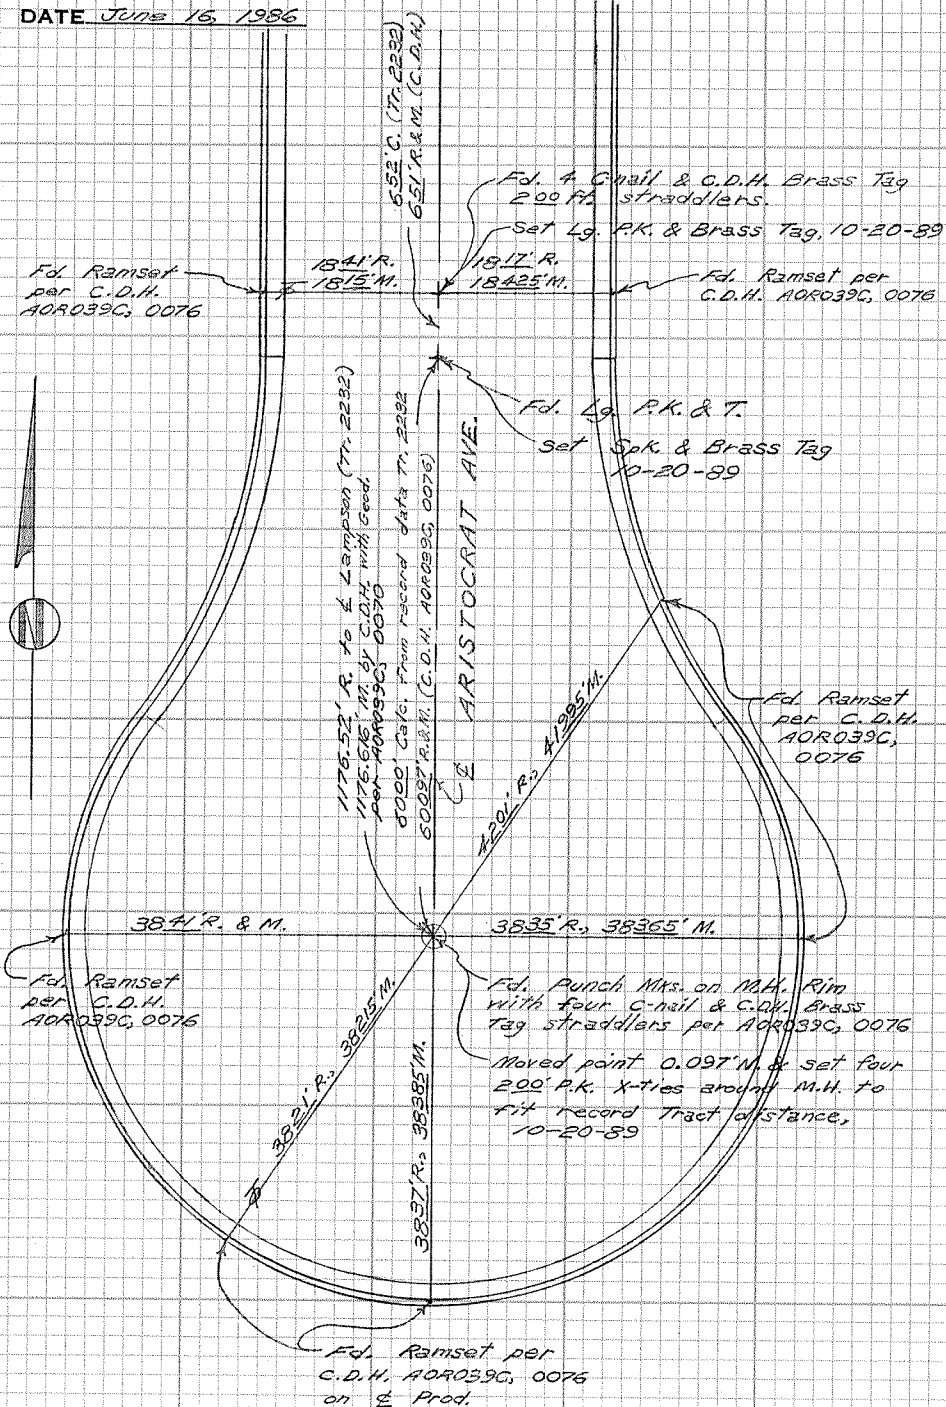 DATE June 16, 1986
652' C. (Tr. 2232)
651' R.& M. (C.D.H.)
Fd. 4 C-nail & C.D.H. Brass Tag
2.00 ft. straddlers.
Set Lg. P.K. & Brass Tag, 10-20-89
Fd. Ramset
per C.D.H.
AOR039C, 0076
1841' R.
1815' M.
1817' R.
18425' M.
Fd. Ramset per
C.D.H. AOR039C, 0076
Fd. Lg. P.K. & T.
Set Spk. & Brass Tag
10-20-89
1176.52' R. to ℄ Lampson (Tr. 2232)
1176.616' M. by C.D.H. with Geod.
per AOR039C, 0076
6000' Calc. from record data Tr. 2232
60097' R.& M. (C.D.H. AOR039C, 0076)
℄ ARISTOCRAT AVE.
4201' R., 41995' M.
Fd. Ramset
per C.D.H.
AOR039C,
0076
3841' R. & M.
3835' R., 38365' M.
Fd. Ramset
per C.D.H.
AOR039C, 0076
Fd. Punch Mks. on M.H. Rim
with four C-nail & C.D.H. Brass
Tag straddlers per AOR039C, 0076
Moved point 0.097' N. & set four
2.00' P.K. X-ties around M.H. to
fit record Tract distance,
10-20-89
3821' R., 38215' M.
3837' R., 38385' M.
Fd. Ramset per
C.D.H. AOR039C, 0076
on ℄ Prod.